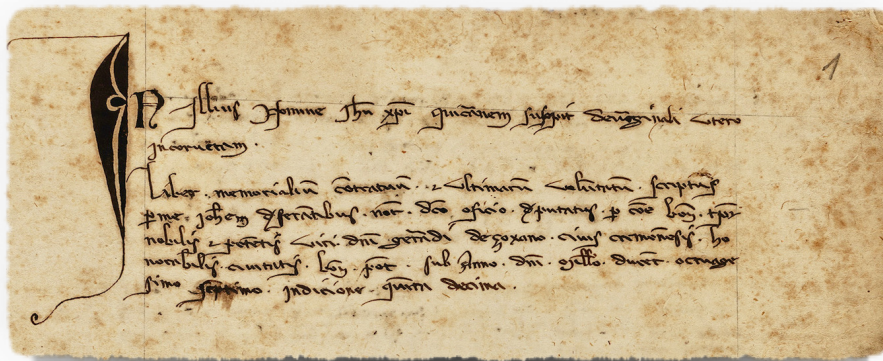 1
IN Illius Nomine Jhu xpi qui carnem suscepit de virginali Utero
incoruptam .
Liber . memorialium contractuum . & Ultimarum Voluntatum . scriptus
per me . Johem . not . dco oficio . deputatus . p coe bon . tpor
nobilis & potetis Viri . dni . de . civis cremonesis . ho
norabilis . civitatis . bon . pot . sub Anno . dni . Millo . ducet . octuage
simo septimo . Indicione . quita decima .